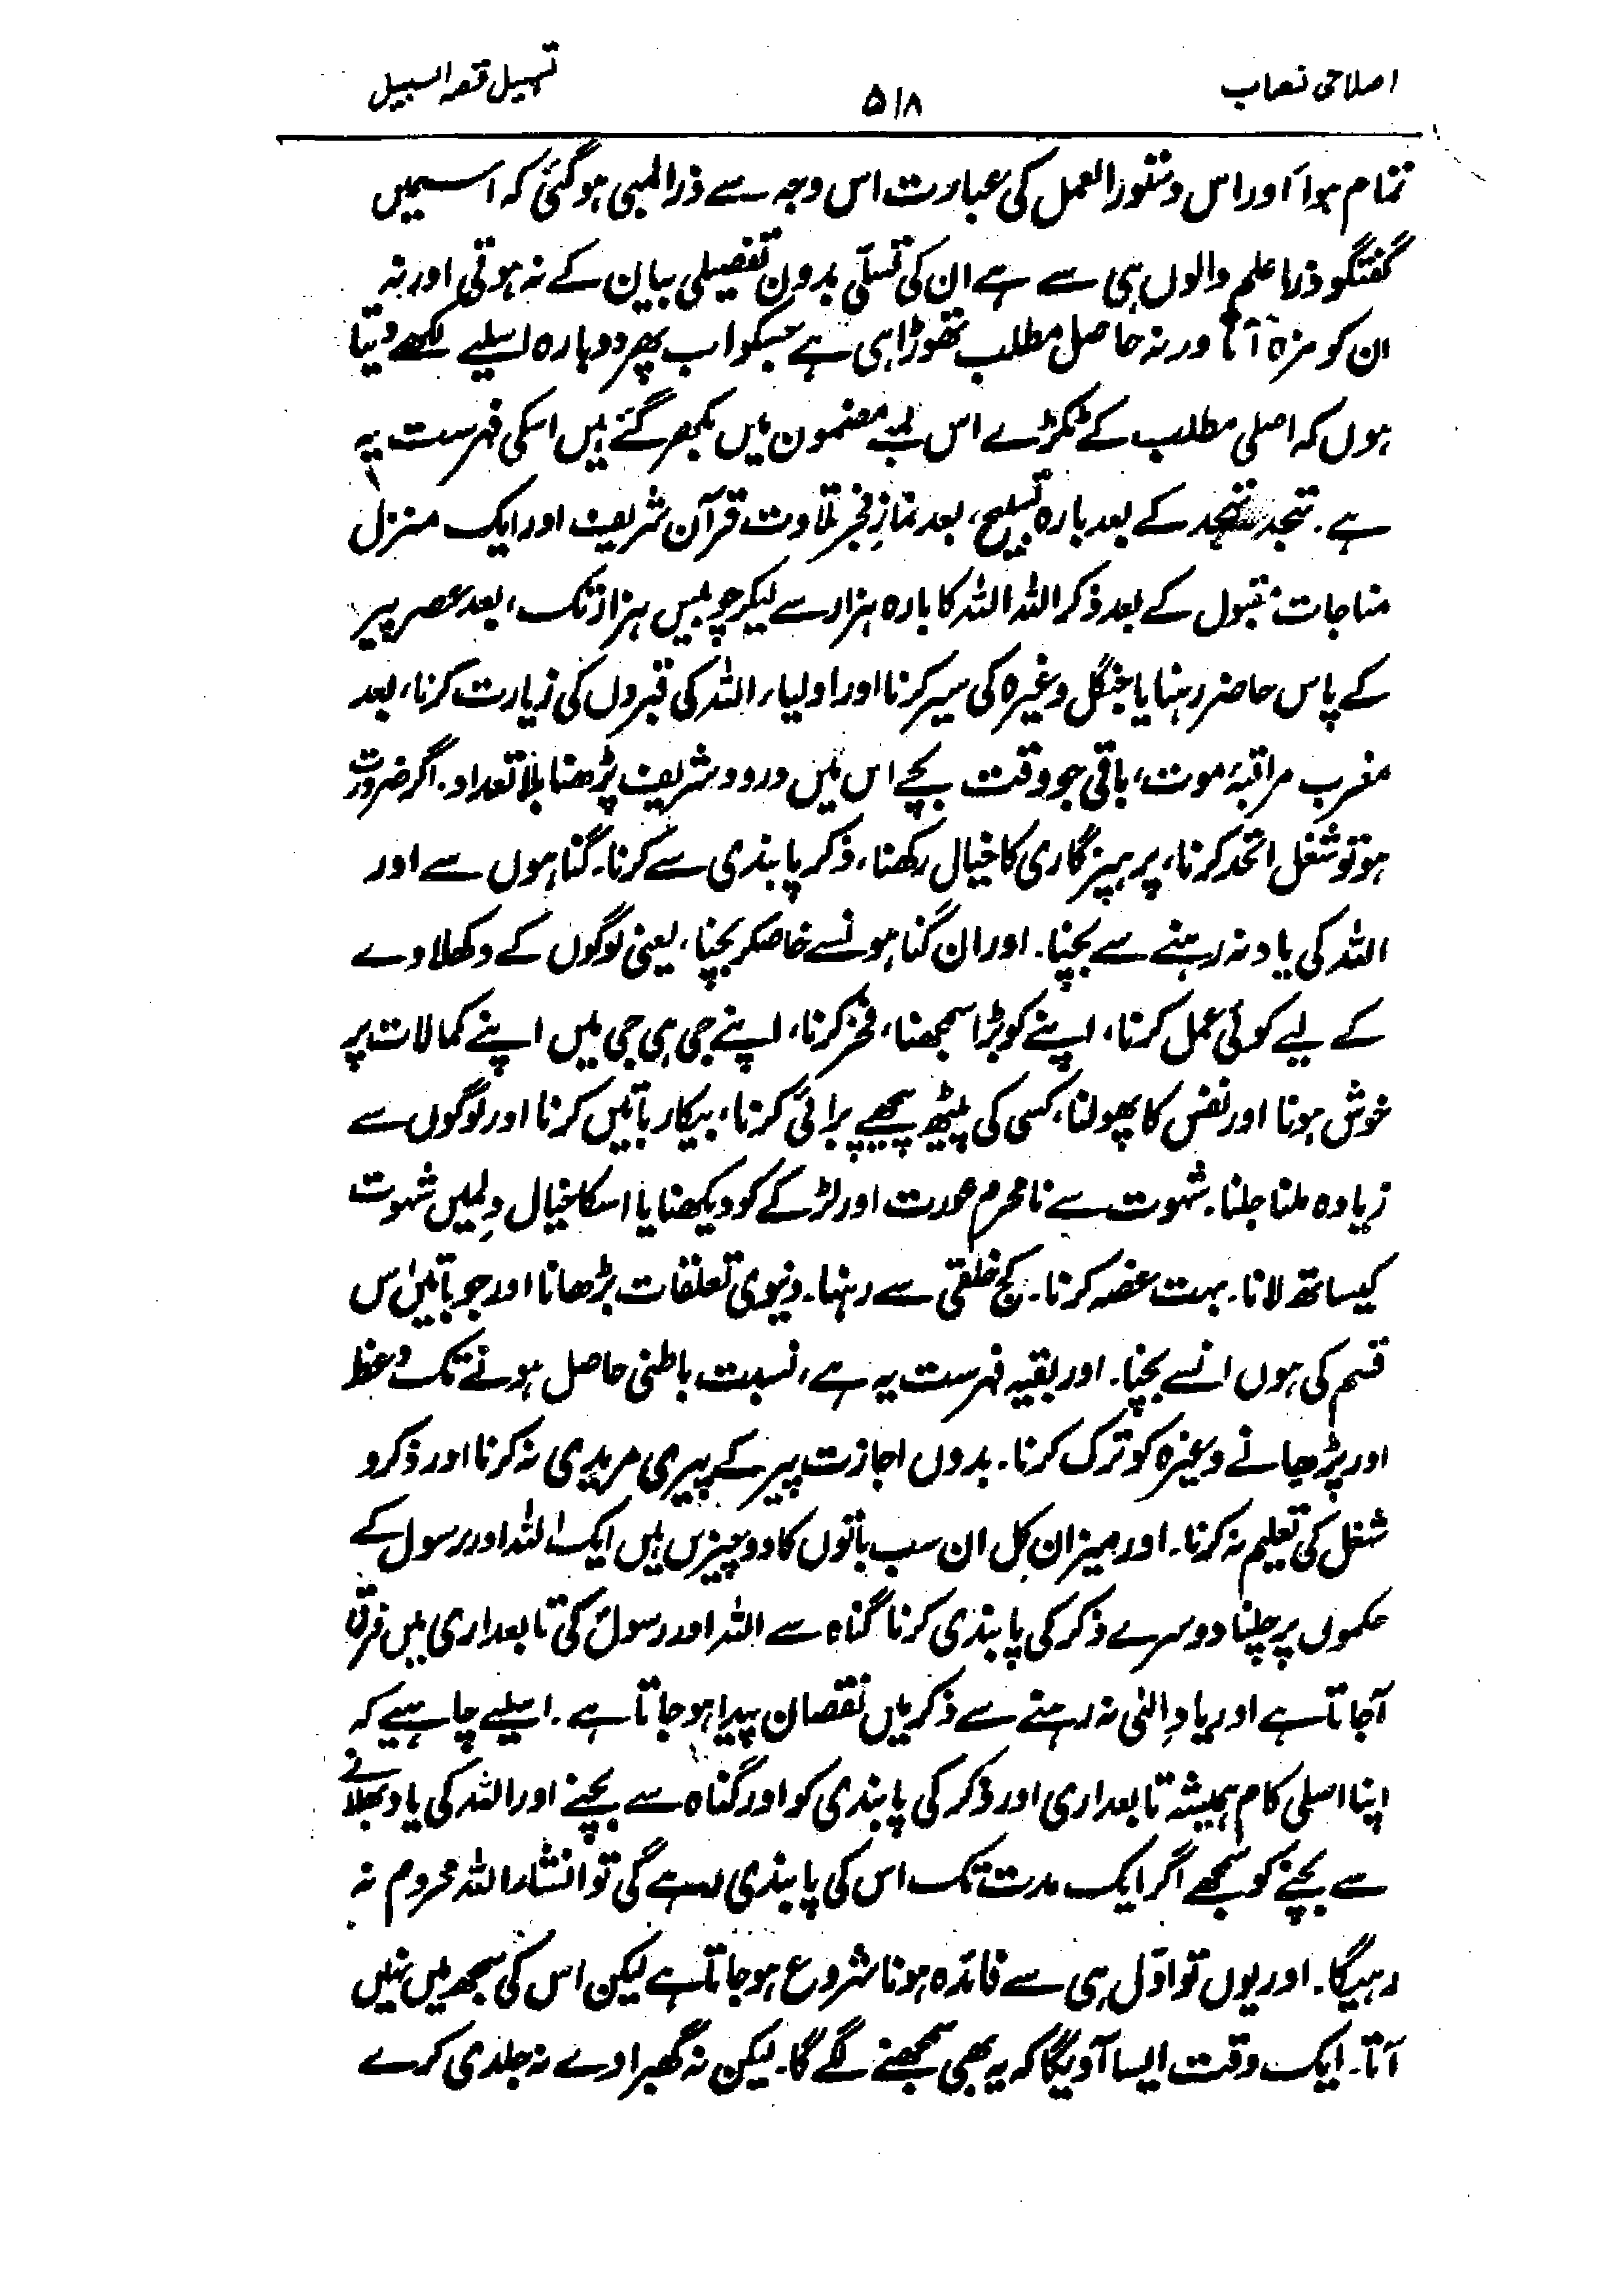 اصلاحی نصاب
۵۱۸
تسہیل قصد السبیل
تمام ہوا اور اس دستور العمل کی عبارت اس وجہ سے ذرا لمبی ہوگئی کہ اسمیں
گفتگو ذرا علم والوں ہی سے ہے ان کی تسلّی بدون تفصیلی بیان کے نہ ہوتی اور نہ
ان کو مزہ آتا ورنہ حاصل مطلب تھوڑا ہی ہے جسکو اب پھر دوبارہ اسلیے لکھے دیتا
ہوں کہ اصلی مطلب کے ٹکڑے اس لمبے مضمون میں بکھر گئے ہیں اسکی فہرست یہ
ہے. تہجد کے بعد بارہ تسبیح، بعد نمازِ فجر تلاوت قرآن شریف اور ایک منزل
مناجات مقبول کے بعد ذکر اللہ اللہ کا بارہ ہزار سے لیکر چوبیس ہزار تک، بعد عصر پیر
کے پاس حاضر رہنا یا جنگل وغیرہ کی سیر کرنا اور اولیاء اللہ کی قبروں کی زیارت کرنا، بعد
مغرب مراقبۂ موت، باقی جو وقت بچے اس میں درود شریف پڑھنا بلا تعداد. اگر ضرورت
ہو تو شغل اتحد کرنا، پرہیزگاری کا خیال رکھنا، ذکر پابندی سے کرنا۔ گناہوں سے اور
اللہ کی یاد نہ رہنے سے بچنا. اور ان گناہونسے خاصکر بچنا، یعنی لوگوں کے دکھلاوے
کے لیے کوئی عمل کرنا، اپنے کو بڑا سمجھنا، فخر کرنا، اپنے جی ہی جی میں اپنے کمالات پر
خوش ہونا اور نفس کا پھولنا، کسی کی پیٹھ پیچھے برائی کرنا، بیکار باتیں کرنا اور لوگوں سے
زیادہ ملنا جلنا. شہوت سے نامحرم عورت اور لڑکے کو دیکھنا یا اسکا خیال دِلمیں شہوت
کیساتھ لانا۔ بہت غصہ کرنا۔ کج خلقی سے رہنا۔ دنیوی تعلقات بڑھانا اور جو باتیں اس
قسم کی ہوں انسے بچنا. اور بقیہ فہرست یہ ہے، نسبت باطنی حاصل ہونے تک وعظ
اور پڑھانے وغیرہ کو ترک کرنا۔ بدوں اجازت پیر کے پیری مریدی نہ کرنا اور ذکر و
شغل کی تعلیم نہ کرنا۔ اور میزان کل ان سب باتوں کا دو چیزیں ہیں ایک اللہ اور رسول کے
حکموں پر چلنا دوسرے ذکر کی پابندی کرنا گناہ سے اللہ اور رسولؐ کی تابعداری میں فرق
آجاتا ہے اور یادِ الٰہی نہ رہنے سے ذکر میں نقصان پیدا ہو جاتا ہے. اسلیے چاہیے کہ
اپنا اصلی کام ہمیشہ تابعداری اور ذکر کی پابندی کو اور گناہ سے بچنے اور اللہ کی یاد بھلانے
سے بچنے کو سمجھے اگر ایک مدت تک اس کی پابندی رہے گی تو انشاء اللہ محروم نہ
رہیگا. اور یوں تو اوّل ہی سے فائدہ ہونا شروع ہو جاتا ہے لیکن اس کی سمجھ میں نہیں
آتا۔ ایک وقت ایسا آویگا کہ یہ بھی سمجھنے لگے گا۔ لیکن نہ گھبراوے نہ جلدی کرے